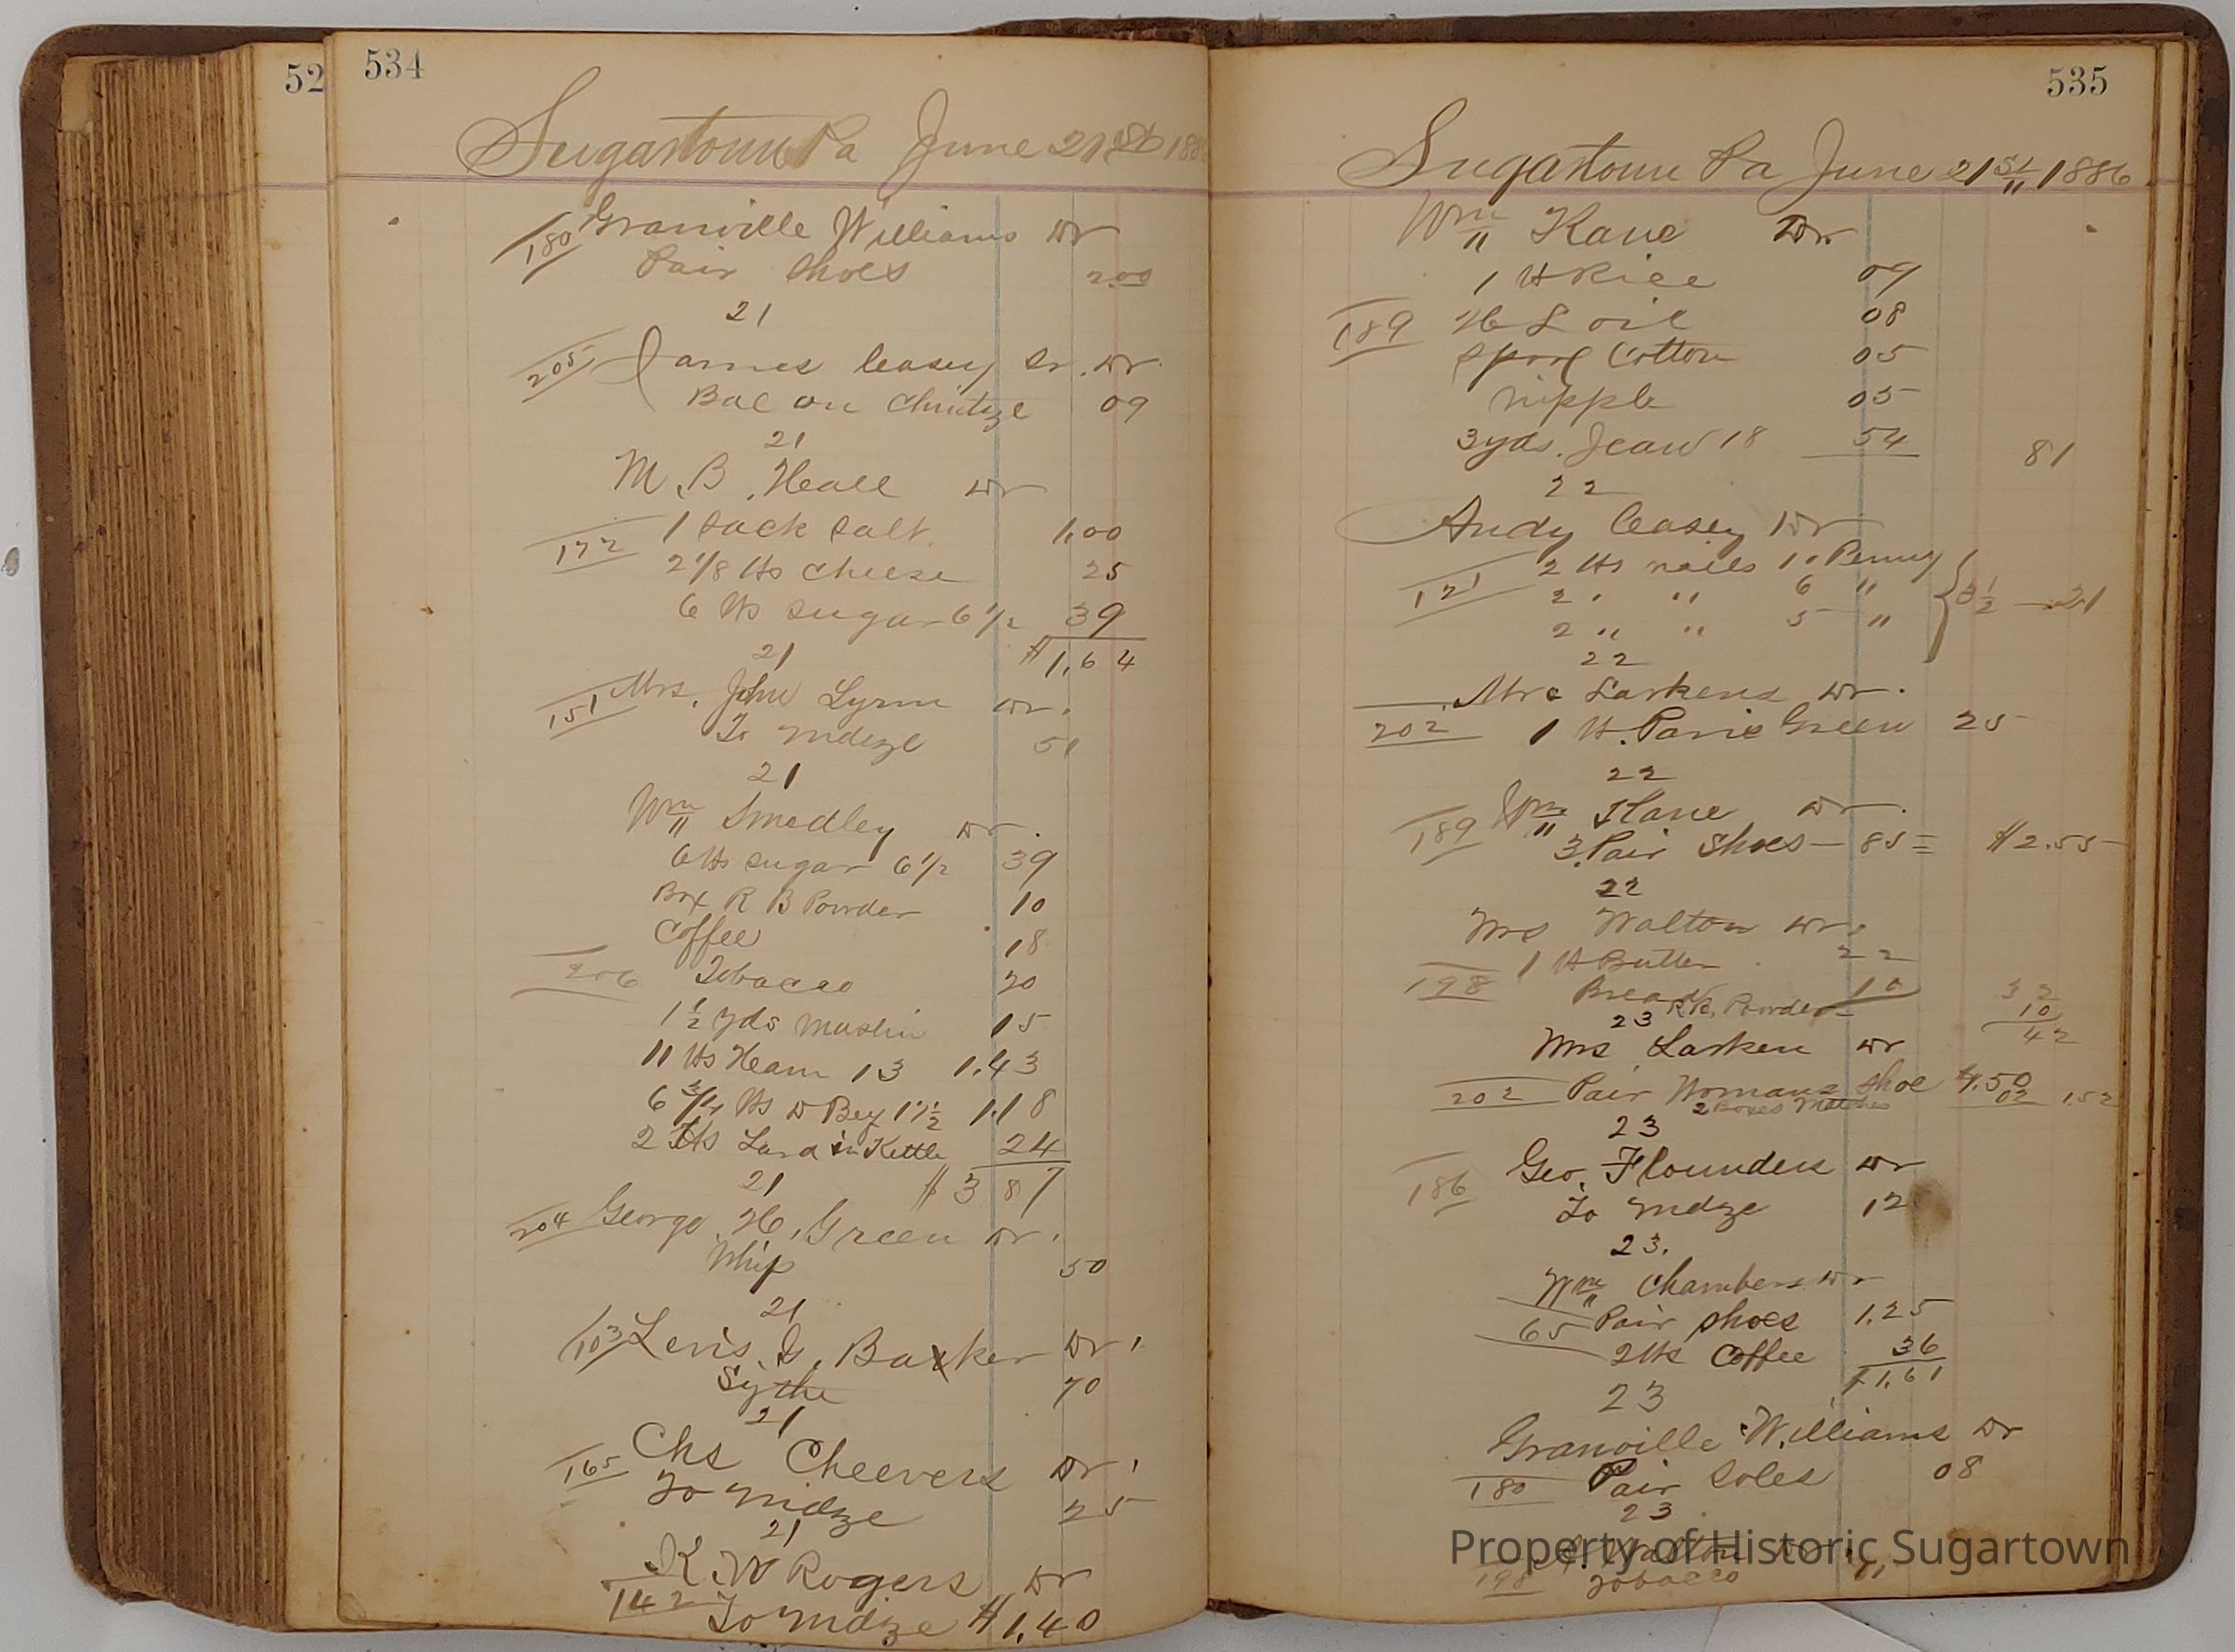 52
534
Sugartown Pa June 21st 188
180 Granville Williams Dr
Pair Shoes 2.00
21
205 James Casey Sr. Dr.
Bal on Chintze 09
21
M. B. Heall Dr
1 Sack Salt. 1.00
177 2 1/8 lbs Cheese 25
6 lbs Sugar 6 1/2 39
21 $1.64
151 Mrs. John Lynn Dr.
To Mdze 51
21
Wm Smedley Dr.
6 lbs sugar 6 1/2 39
Box R B Powder 10
Coffee 18
206 Tobacco 20
1 1/2 yds Muslin 15
11 lbs Ham 13 1.43
6 3/4 lbs D Bef 17 1/2 1.18
2 lbs Lard in Kettle 24
21 $3 87
204 George H. Green Dr.
Whip 50
21
103 Levis G. Barker Dr.
Sythe 70
21
165 Chs Cheevers Dr.
To Mdze 25
21
K. W Rogers Dr
142 To Mdze $1.40
535
Sugartown Pa June 21st 1886
Wm Kane Dr.
1 lb Rice 09
189 H L oil 08
Spool Cotton 05
nipple 05
3 yds. Jean 18 54 81
22
Andy Casey Dr
121 2 lbs nails 10 Penny
2 " " 6 " 3 1/2 — 21
2 " " 5 "
22
Mrs Larkens Dr.
202 1 lb. Paris Green 25
22
189 Wm Kane Dr.
3 Pair Shoes — 85 = $2.55
22
Mrs Walton Dr.
198 1 lb Butter 22
Bread 10 32
R.R. Powder 10
23 42
Mrs Larken Dr
202 Pair Womans Shoe 1.50
2 Boxes Matches 02 1.52
23
186 Geo. Flounders Dr
To Mdze 12
23.
Wm Chambers Dr
65 Pair shoes 1.25
2 lbs Coffee 36
23 1.61
Granville Williams Dr
180 Pair Soles 08
23
Walton Dr.
198 Tobacco
Property of Historic Sugartown